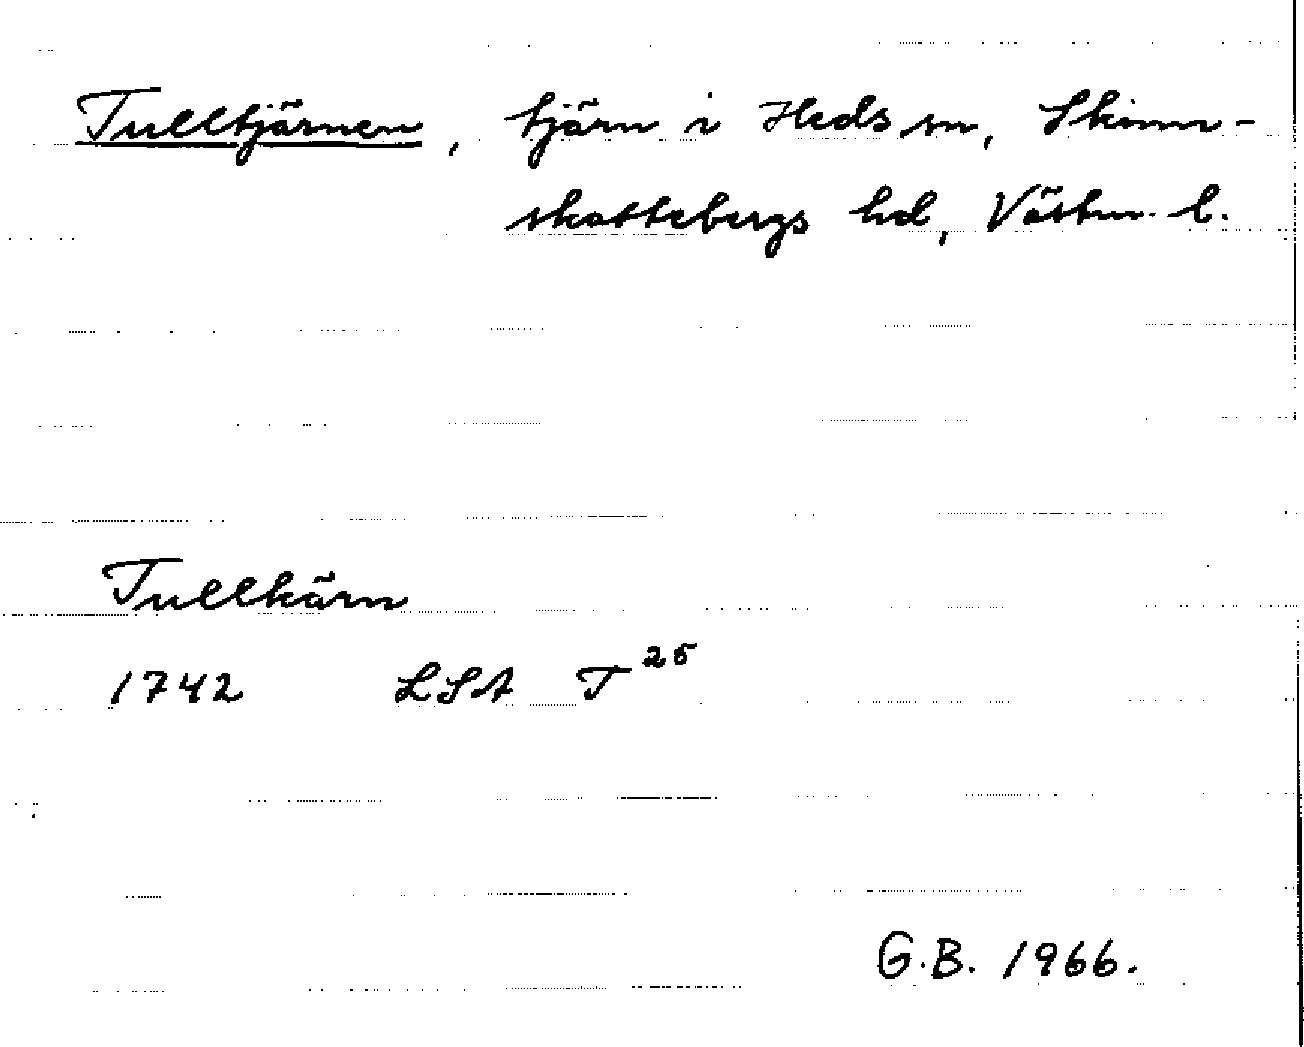 Tulltjärnen, tjärn i Heds sn, Skinn-
skattebergs hd, Västm. l.
Tullkärn
1742 LSA T 25
G.B. 1966.